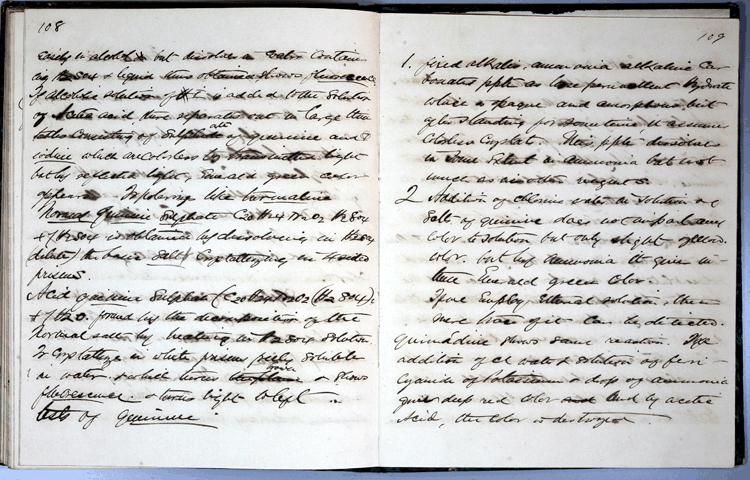 108
easily in alcohol but dissolves in water contain-
ing H2SO4 & liquid thus obtained shows fluorescence
If alcoholic solution of I is added to the solution
of acetic acid there separates out in large thin
consisting of Sulphate of quinine and
iodine which are colorless by transmitted light
but by reflected light, Emerald green color
appears. Is polarizing like turmaline
Normal Quinine Sulphate C20H24N2O2 H2SO4
+7H2O is obtained by dissolving in H2SO4
(dilute) the basic salt, Crystallizing in 4 sided
prisms.
Acid quinine Sulphate (C20H24N2O2 (H2SO4)2
+7H2O. formed by the decomposition of the
Normal salt by heating in H2SO4 solution.
It Crystallizes in white prisms easily soluble
in water & which turns & shows
fluorescence. & turns light to left.
tests of quinine:
109
1. fixed alkalies, ammonia alkaline Car-
bonates ppts as Hydrate
white opaque and amorphous, but
after standing for sometime, it assumes
Colorless Crystals. This ppte dissolves
in some extent in ammonia but not
much as in other reagents.
2 Addition of chlorine water in solution of
salt of quinine does not impart any
color to solution but only slight yellow.
color. but by ammonia it gives in-
tense Emerald green color.
If we Employ, Ethereal solution, then
trace of it can be detected.
Quinidine shows same reaction. If
addition of Cl water & solution of ferri-
Cyanide of Potassium & drop of ammonia
gives deep red color and by acetic
Acid, the color is destroyed.